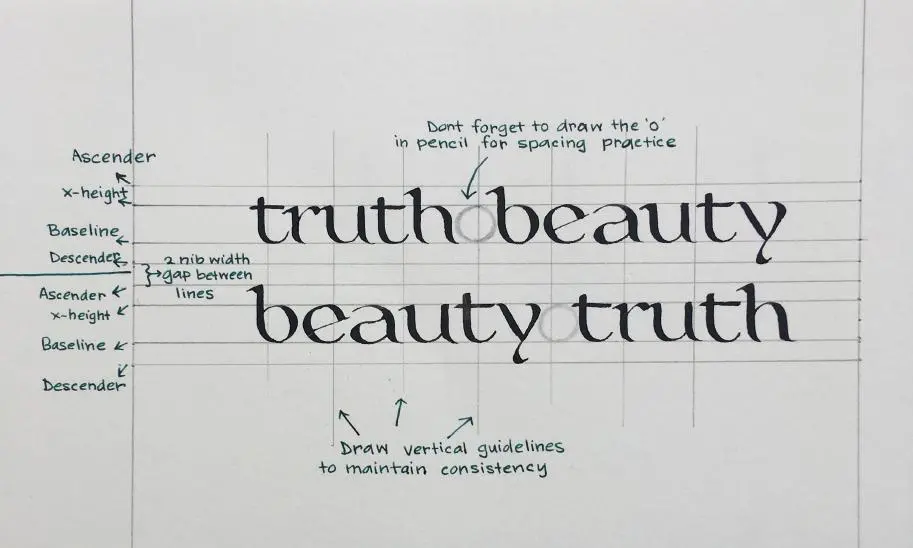 Dont forget to draw the 'o'
in pencil for spacing practice
Ascender
x-height
truth beauty
Baseline
Descender
2 nib width
gap between
lines
Ascender
x-height
beauty truth
Baseline
Descender
Draw vertical guidelines
to maintain consistency